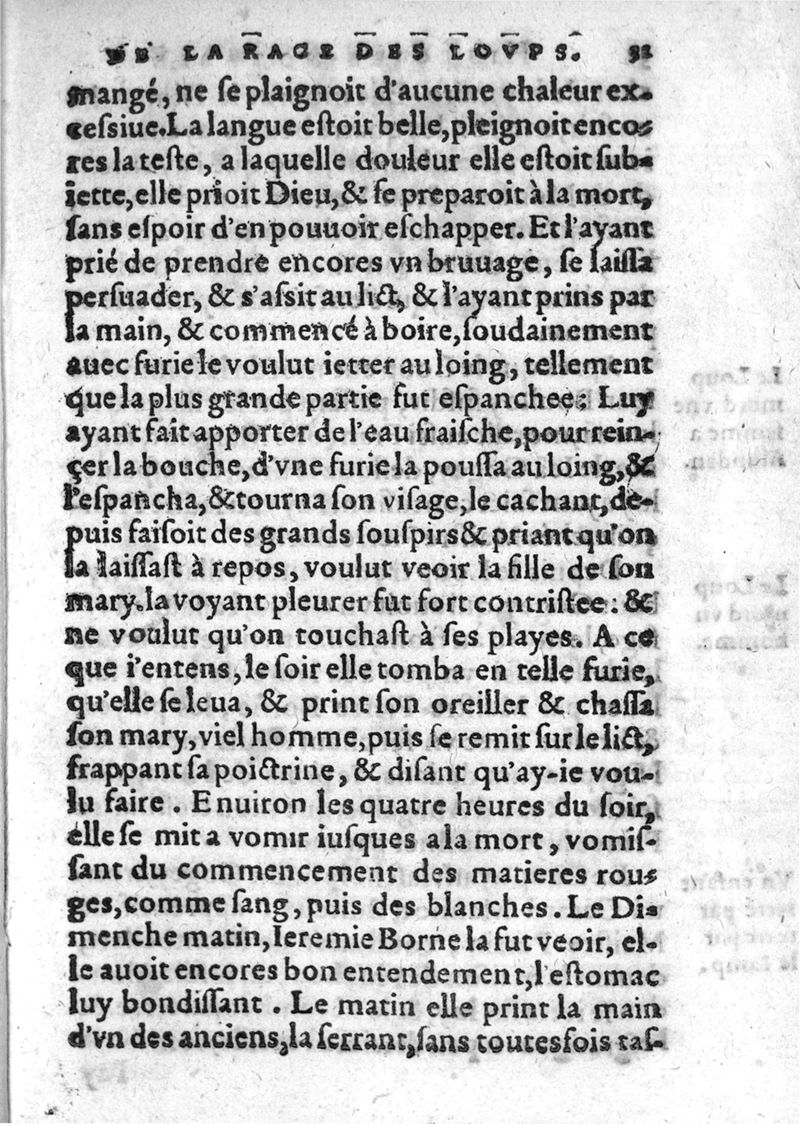 DE LA RAGE DES LOVPS. 32
mangé, ne ſe plaignoit d'aucune chaleur ex-
ceſsiue. La langue eſtoit belle, pleignoit enco-
res la teſte, a laquelle douleur elle eſtoit ſub-
iette, elle prioit Dieu, & ſe preparoit à la mort,
ſans eſpoir d'en pouuoir eſchapper. Et l'ayant
prié de prendre encores vn bruuage, ſe laiſſa
perſuader, & s'aſsit au lict, & l'ayant prins par
la main, & commencé à boire, ſoudainement
auec furie le voulut ietter au loing, tellement
que la plus grande partie fut eſpanchee: Luy
ayant fait apporter de l'eau fraiſche, pour rein-
çer la bouche, d'vne furie la pouſſa au loing, &
l'eſpancha, & tourna ſon viſage, le cachant, de-
puis faiſoit des grands ſouſpirs & priant qu'on
la laiſſaſt à repos, voulut veoir la fille de ſon
mary. la voyant pleurer fut fort contriſtee: &
ne voulut qu'on touchaſt à ſes playes. A ce
que i'entens, le ſoir elle tomba en telle furie,
qu'elle ſe leua, & print ſon oreiller & chaſſa
ſon mary, viel homme, puis ſe remit ſur le lict,
frappant ſa poictrine, & diſant qu'ay-ie vou-
lu faire. Enuiron les quatre heures du ſoir,
elle ſe mit a vomir iuſques a la mort, vomiſ-
ſant du commencement des matieres rou-
ges, comme ſang, puis des blanches. Le Di-
menche matin, Ieremie Borne la fut veoir, el-
le auoit encores bon entendement, l'eſtomac
luy bondiſſant. Le matin elle print la main
d'vn des anciens, la ſerrant, ſans toutesfois taſ-